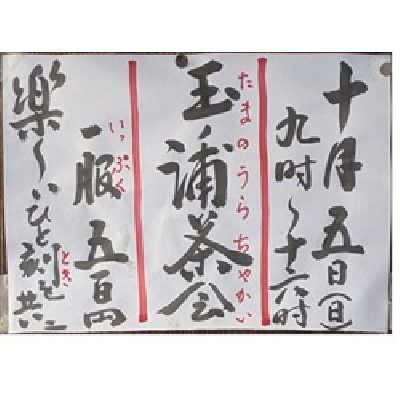 十月五日(日)
九時〜十六時
玉ノ浦茶会
たまのうらちゃかい
一服 五百円
いっぷく
楽しいひと刻を共に
とき